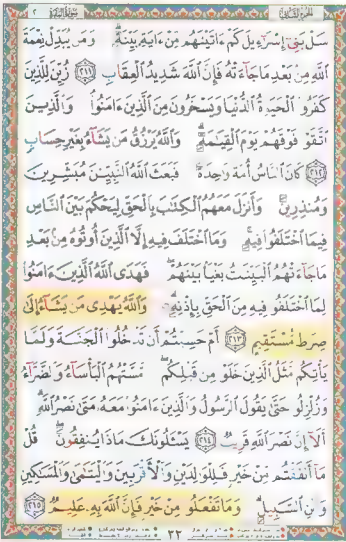 الجزء الثاني سورة البقرة ٢
سَلْ بَنِىٓ إِسْرَٰٓءِيلَ كَمْ ءَاتَيْنَٰهُم مِّنْ ءَايَةٍۭ بَيِّنَةٍ ۗ وَمَن يُبَدِّلْ نِعْمَةَ
ٱللَّهِ مِنۢ بَعْدِ مَا جَآءَتْهُ فَإِنَّ ٱللَّهَ شَدِيدُ ٱلْعِقَابِ ﴿٢١١﴾ زُيِّنَ لِلَّذِينَ
كَفَرُوا۟ ٱلْحَيَوٰةُ ٱلدُّنْيَا وَيَسْخَرُونَ مِنَ ٱلَّذِينَ ءَامَنُوا۟ ۘ وَٱلَّذِينَ
ٱتَّقَوْا۟ فَوْقَهُمْ يَوْمَ ٱلْقِيَٰمَةِ ۗ وَٱللَّهُ يَرْزُقُ مَن يَشَآءُ بِغَيْرِ حِسَابٍ
﴿٢١٢﴾ كَانَ ٱلنَّاسُ أُمَّةً وَٰحِدَةً فَبَعَثَ ٱللَّهُ ٱلنَّبِيِّۦنَ مُبَشِّرِينَ
وَمُنذِرِينَ وَأَنزَلَ مَعَهُمُ ٱلْكِتَٰبَ بِٱلْحَقِّ لِيَحْكُمَ بَيْنَ ٱلنَّاسِ
فِيمَا ٱخْتَلَفُوا۟ فِيهِ ۚ وَمَا ٱخْتَلَفَ فِيهِ إِلَّا ٱلَّذِينَ أُوتُوهُ مِنۢ بَعْدِ
مَا جَآءَتْهُمُ ٱلْبَيِّنَٰتُ بَغْيًۢا بَيْنَهُمْ ۖ فَهَدَى ٱللَّهُ ٱلَّذِينَ ءَامَنُوا۟
لِمَا ٱخْتَلَفُوا۟ فِيهِ مِنَ ٱلْحَقِّ بِإِذْنِهِۦ ۗ وَٱللَّهُ يَهْدِى مَن يَشَآءُ إِلَىٰ
صِرَٰطٍ مُّسْتَقِيمٍ ﴿٢١٣﴾ أَمْ حَسِبْتُمْ أَن تَدْخُلُوا۟ ٱلْجَنَّةَ وَلَمَّا
يَأْتِكُم مَّثَلُ ٱلَّذِينَ خَلَوْا۟ مِن قَبْلِكُم ۖ مَّسَّتْهُمُ ٱلْبَأْسَآءُ وَٱلضَّرَّآءُ
وَزُلْزِلُوا۟ حَتَّىٰ يَقُولَ ٱلرَّسُولُ وَٱلَّذِينَ ءَامَنُوا۟ مَعَهُۥ مَتَىٰ نَصْرُ ٱللَّهِ ۗ
أَلَآ إِنَّ نَصْرَ ٱللَّهِ قَرِيبٌ ﴿٢١٤﴾ يَسْـَٔلُونَكَ مَاذَا يُنفِقُونَ ۖ قُلْ
مَآ أَنفَقْتُم مِّنْ خَيْرٍ فَلِلْوَٰلِدَيْنِ وَٱلْأَقْرَبِينَ وَٱلْيَتَٰمَىٰ وَٱلْمَسَٰكِينِ
وَٱبْنِ ٱلسَّبِيلِ ۗ وَمَا تَفْعَلُوا۟ مِنْ خَيْرٍ فَإِنَّ ٱللَّهَ بِهِۦ عَلِيمٌ ﴿٢١٥﴾
٣٣